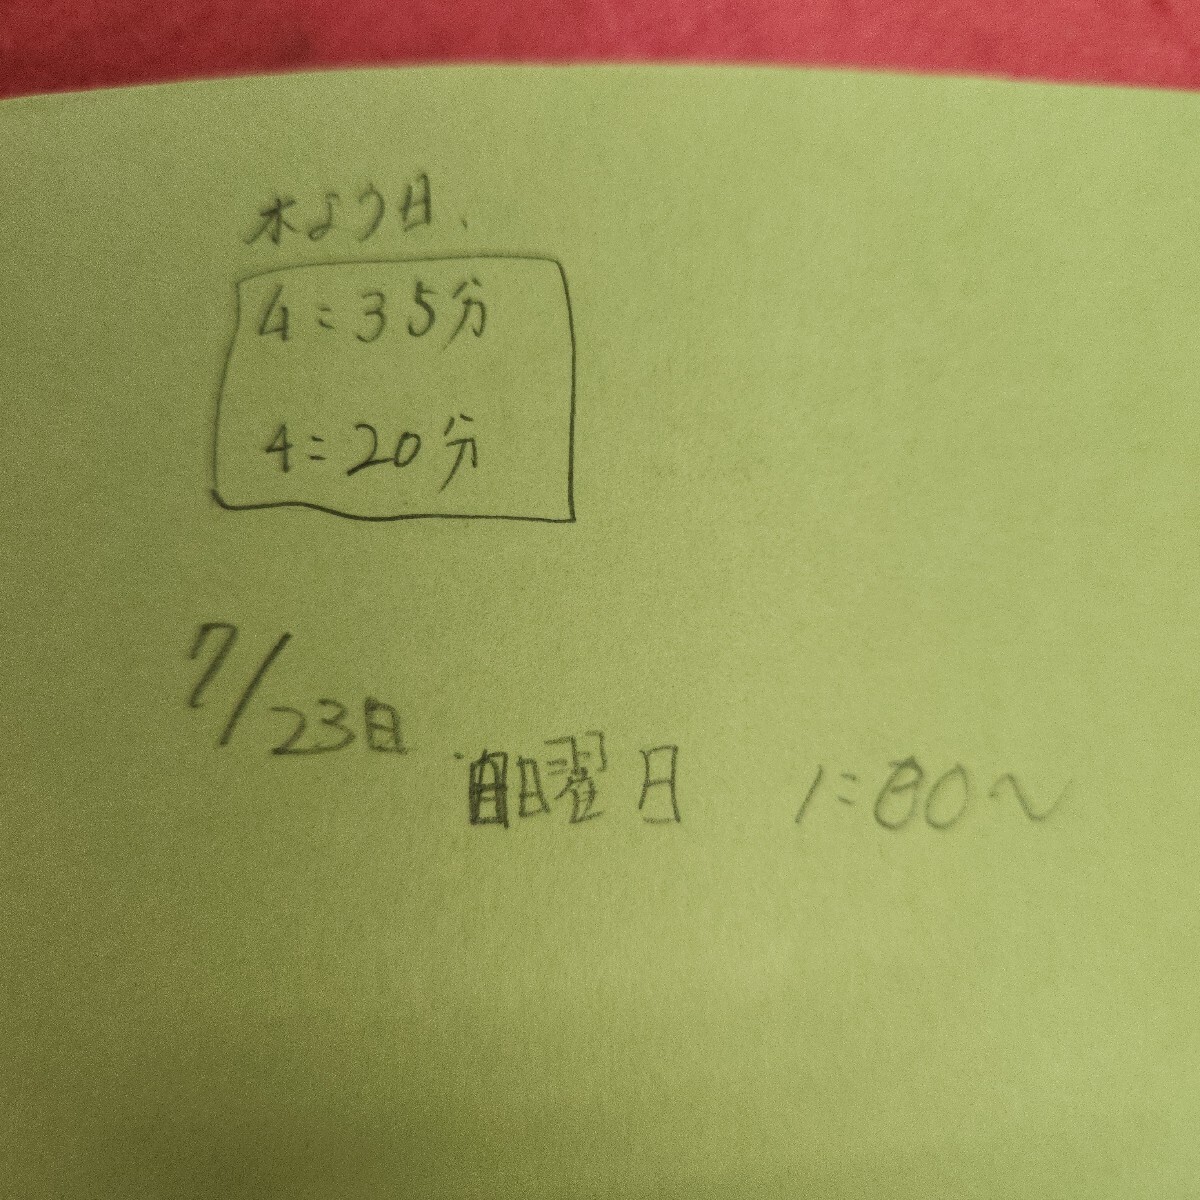 木よう日、
4:35分
4:20分
7/23日
日曜日 1:00〜